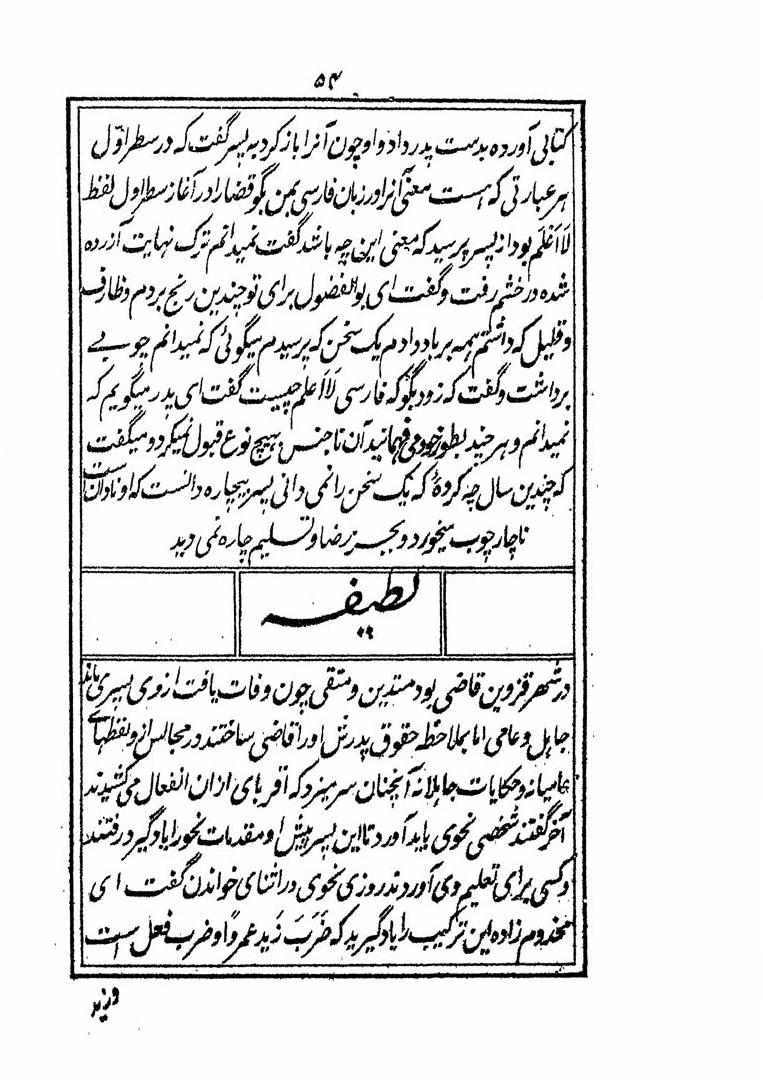 ۵۴
کتابی آورده بدست پدر داد و او چون آنرا باز کرد به پسر گفت که در سطر اوّل
هر عبارتی که هست معنی آنرا در زبان فارسی بمن بگو قضارا در آغاز سطر اول لفظ
لَا اَعْلَم بود از پسر پرسید که معنی این چه باشد گفت نمیدانم ترک نهایت آزرده
شده در خشم رفت و گفت ای بوالفضول برای تو چندین رنج بردم و ظارف
و قلیل که داشتم همه بر باد دادم یک سخن که پرسیدم میگوئی که نمیدانم چوبے
برداشت و گفت که زود بگو که فارسی لَا اَعلم چیست گفت ای پدر میگویم که
نمیدانم و هر چند بطور خود می فهمانید آن ناجنس بهیچ نوع قبول نمیکرد و میگفت
که چندین سال چه کردهٔ که یک سخن را نمی دانی پسر بیچاره دانست که او نادان است
ناچار چوب میخورد و بجز رضا و تسلیم چاره نمی دید
لطیفه
در شهر قزوین قاضی بود متدین و متقی چون وفات یافت از وی پسری ماند
جاهل و عامی اما بملاحظه حقوق پدرش او را قاضی ساختند در مجالس از و لفظهای
عامیانه و حکایات جاهلانه آنچنان سر میزد که اقربای از ان انفعال می کشیدند
آخر گفتند شخصی نحوی باید آورد تا این پسر پیش او مقدمات نحو را یاد گیرد رفتند
و کسی برای تعلیم وی آوردند روزی نحوی در اثنای خواندن گفت ای
مخدوم زاده این ترکیب را یاد گیرید که ضَرَبَ زَید عمرواً و ضرب فعل است
و زید